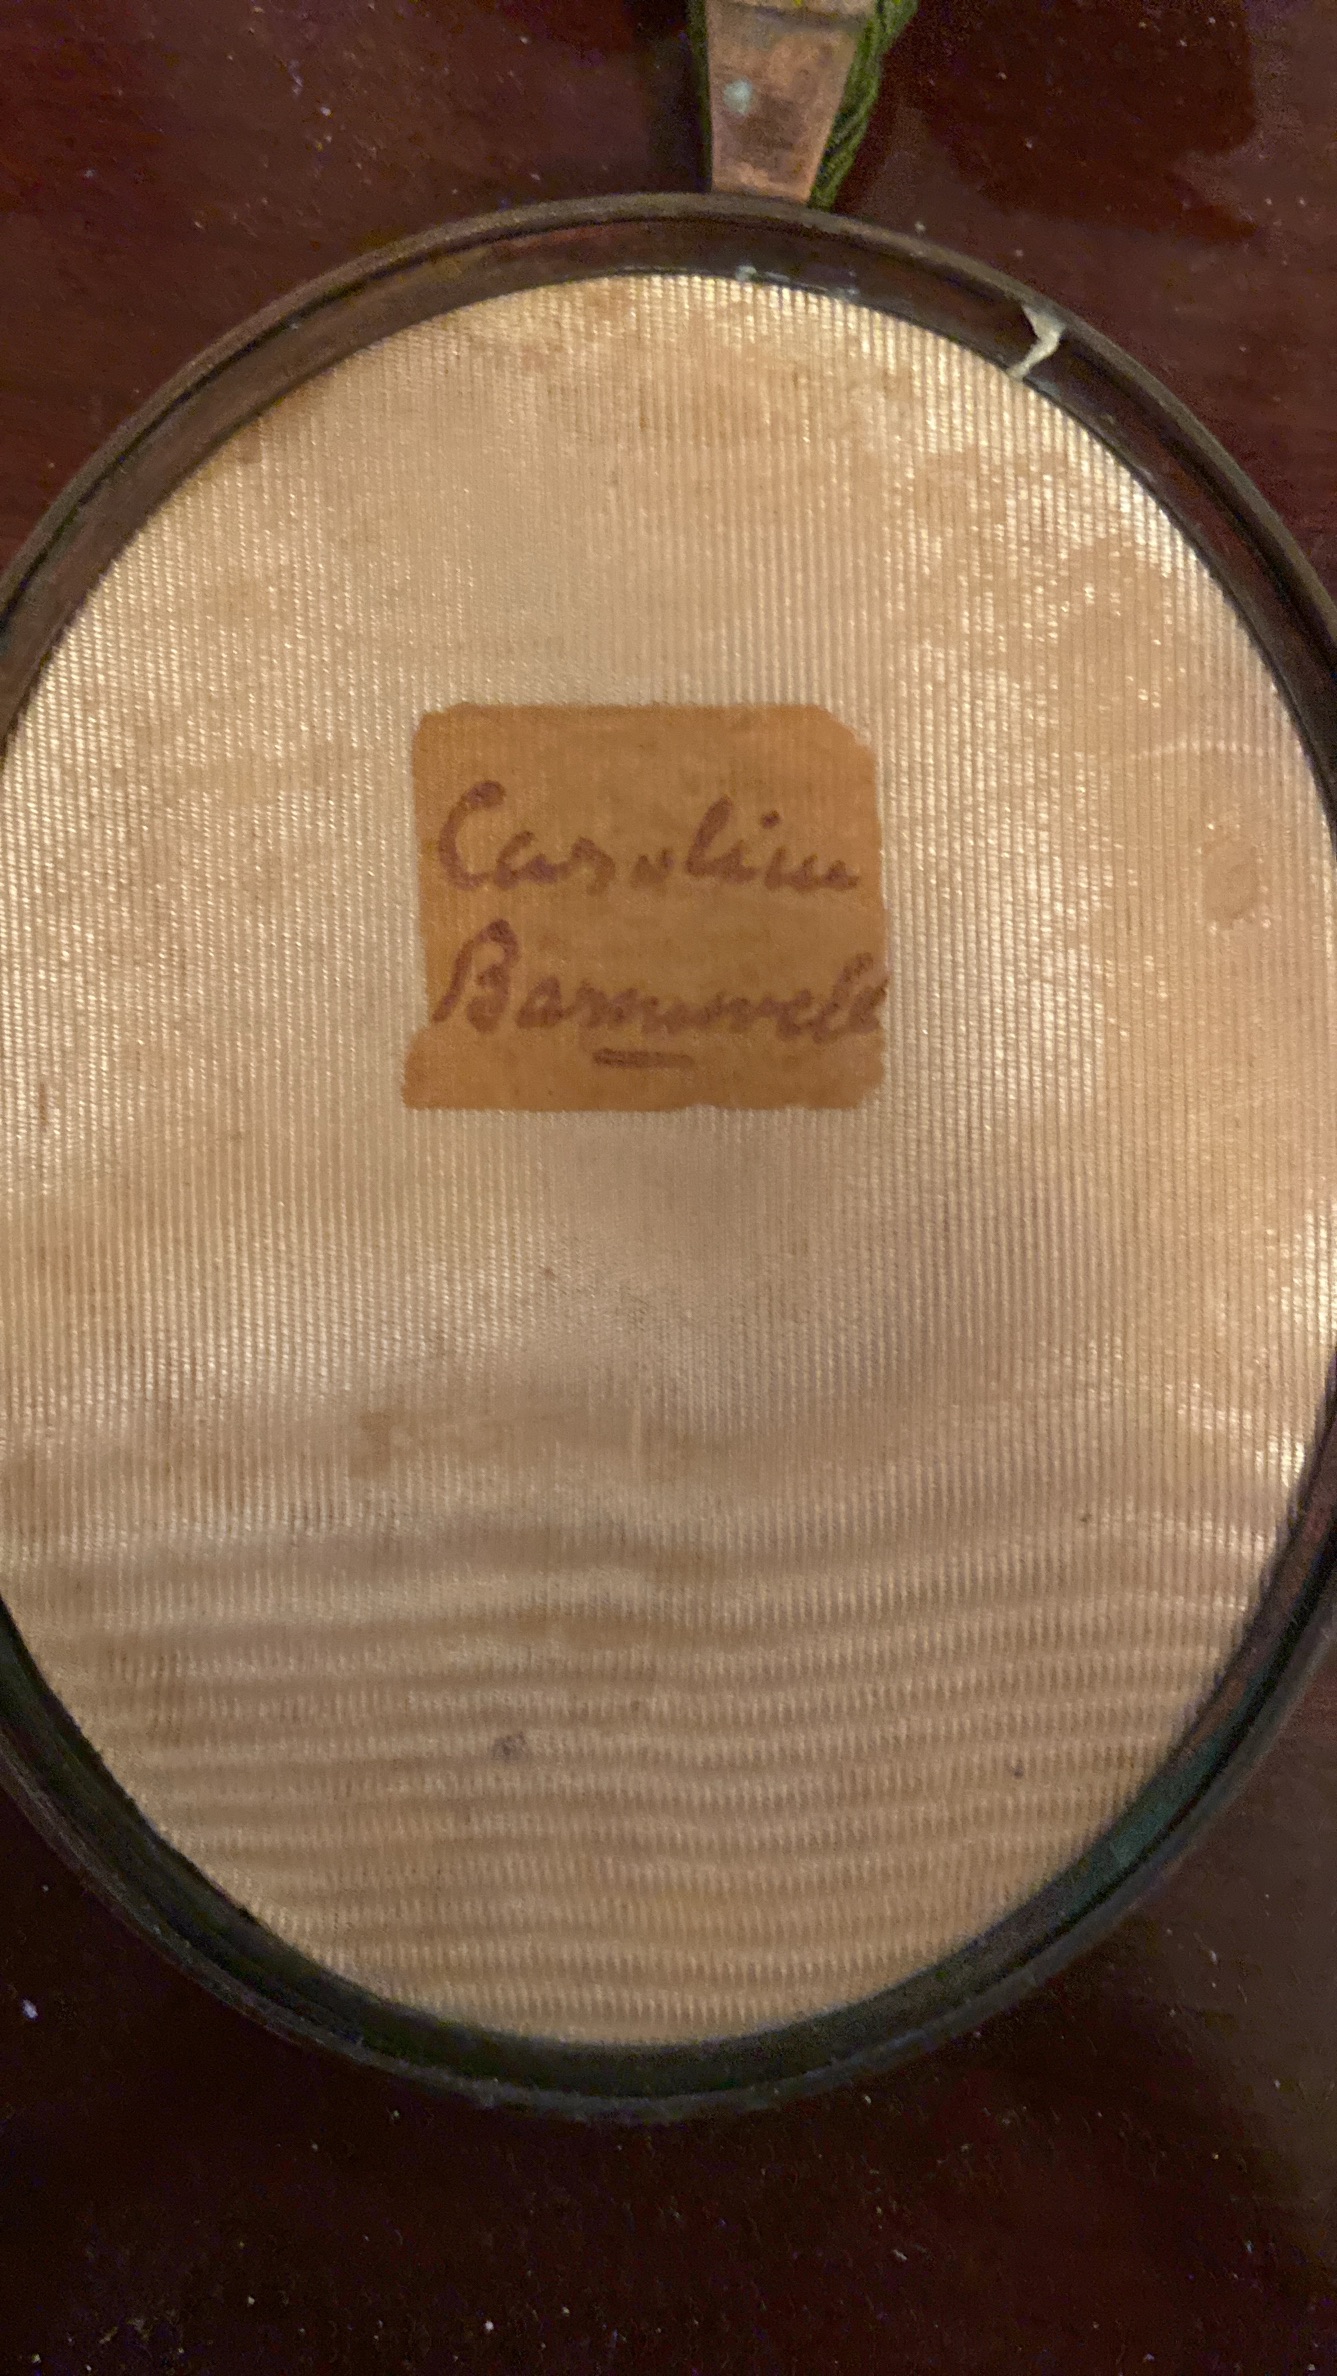 Caroline
Barnwell